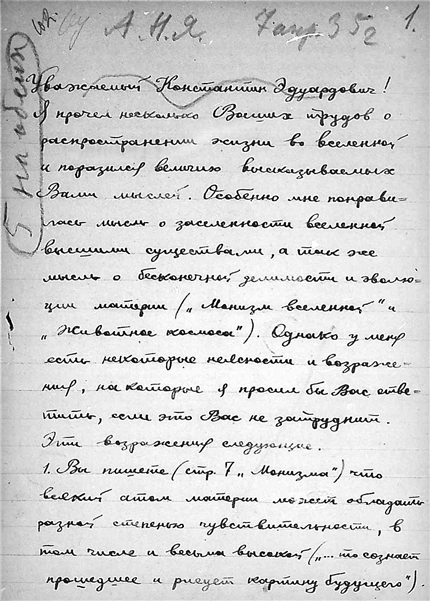 А.Н.Я. 7 апр. 35 г 1.
Уважаемый Константин Эдуардович!
Я прочел несколько Ваших трудов о
распространении жизни во вселенной
и поразился величию высказываемых
Вами мыслей. Особенно мне понрави-
лась мысль о заселенности вселенной
высшими существами, а так же
мысль о бесконечной делимости и эволю-
ции материи („Монизм вселенной" и
„Животное космоса"). Однако у меня
есть некоторые неясности и возраже-
ния, на которые я просил бы Вас отве-
тить, если это Вас не затруднит.
Эти возражения следующие.
1. Вы пишете (стр. 7 „Монизма") что
всякий атом материи может обладать
разной степенью чувствительности, в
том числе и весьма высокой („...то сознает
прошедшее и рисует картину будущего").